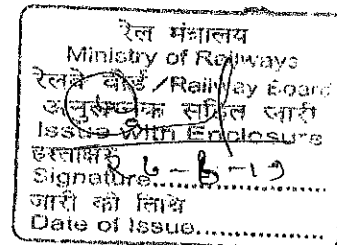 रेल मंत्रालय
Ministry of Railways
रेलवे बोर्ड/Railway Board
अनुलग्नक सहित जारी
Issue with Enclosure
हस्ताक्षर
Signature..............
जारी की तिथि
Date of Issue..............